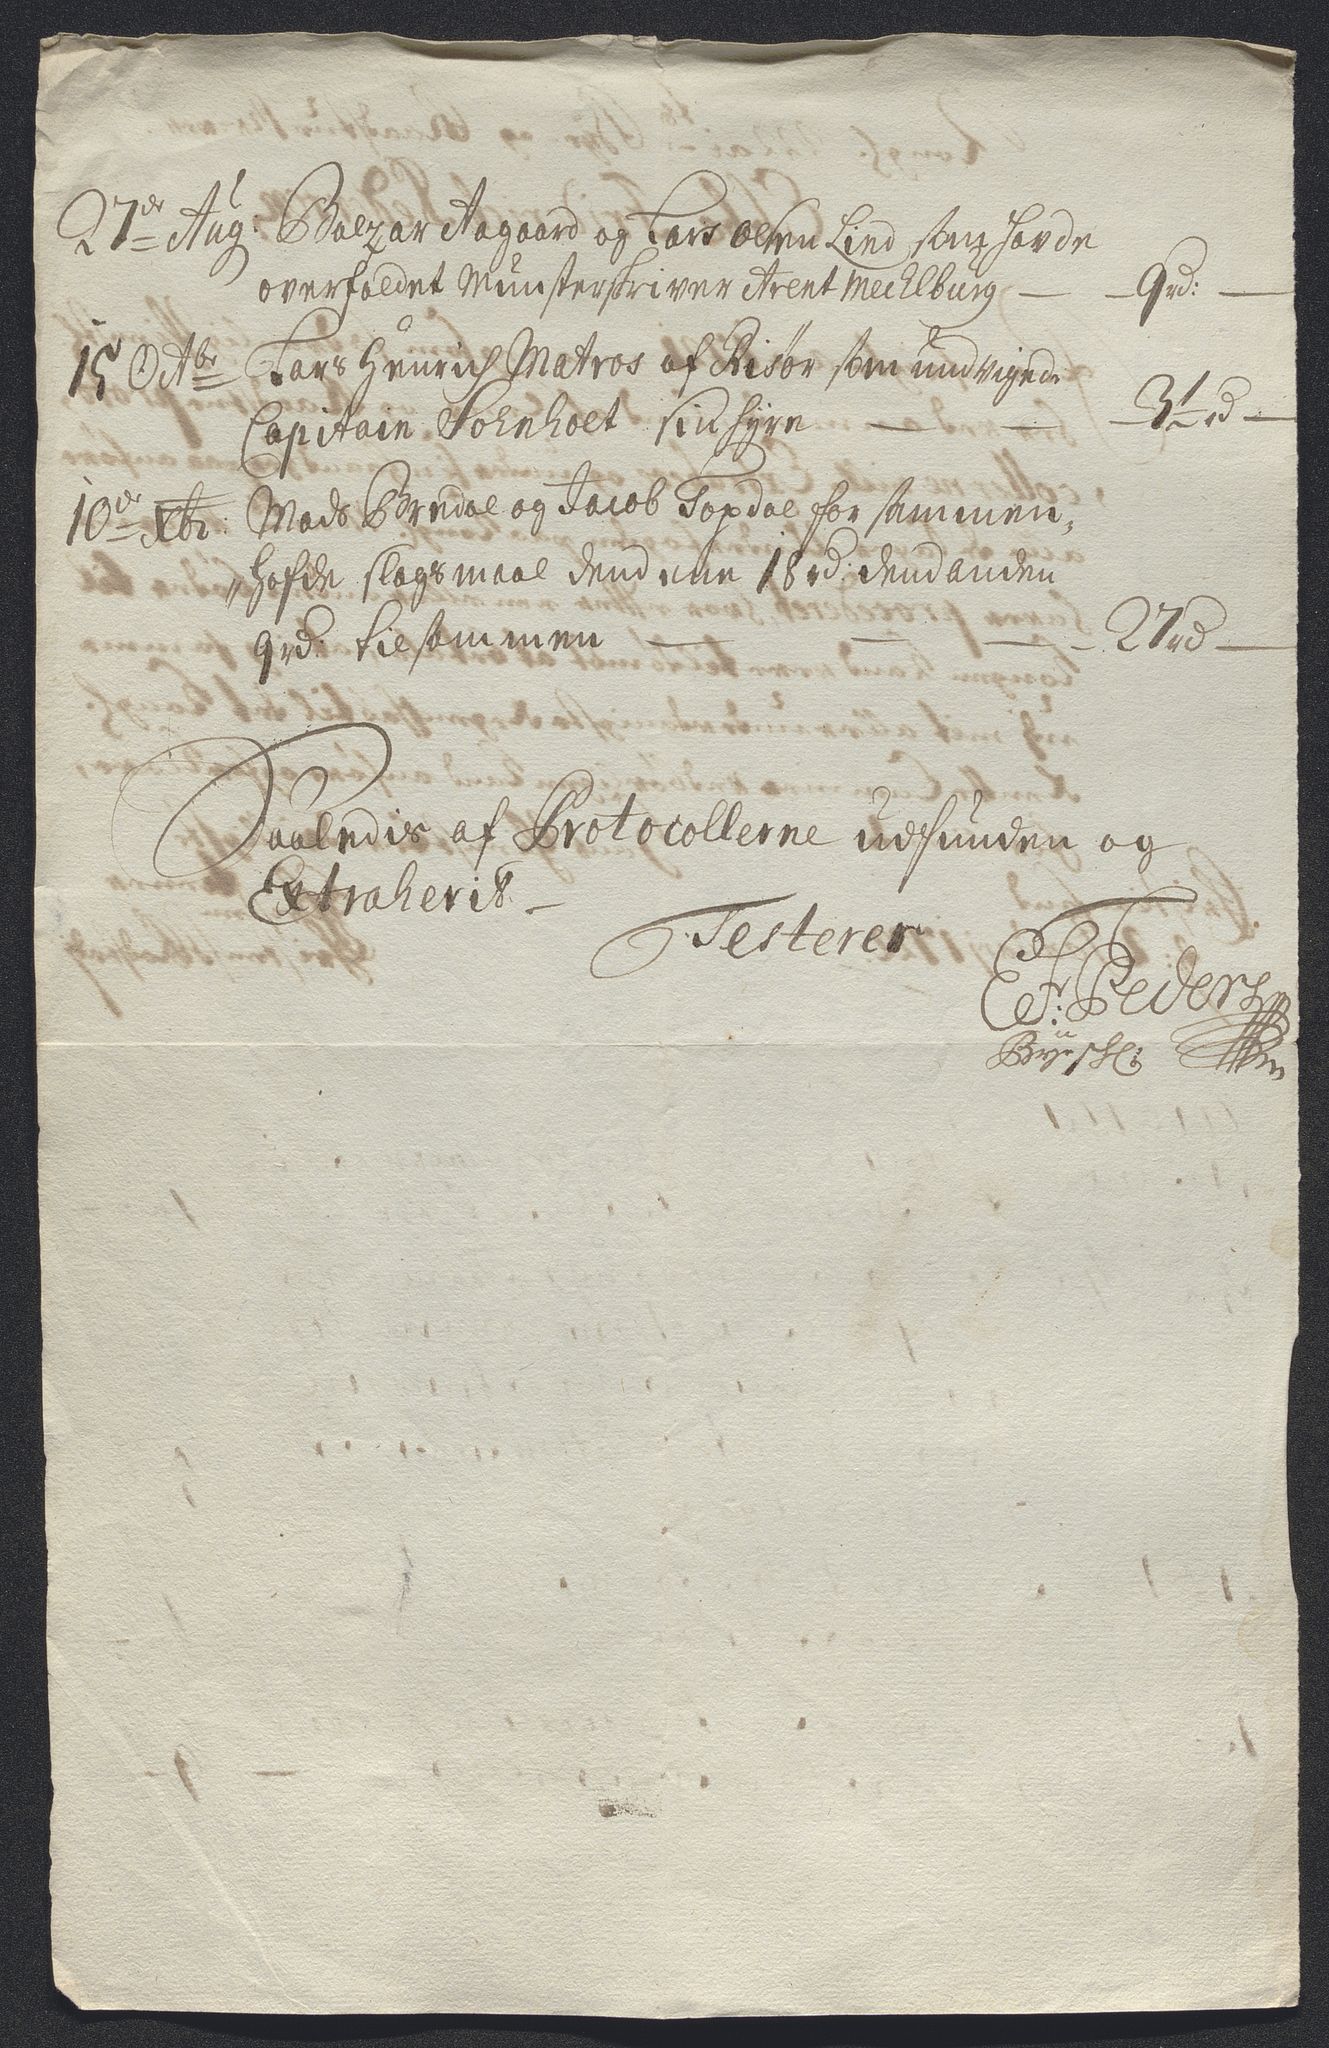 27de Aug: Balzar Aagaard og Lars Olsen Lind som hafde
overfaldet Munsterskriver Arent Mechlburg — 9rd: —
15 Octbr Lars Henrich Matros af Risör som undvigede
Capitain Tohnholt sin hÿre — — 3½rd —
10de Xbr: Mads Bredal og Jacob Topdal for sammen,,
,,hafde slagsmaal dend eene 18rd: dend anden
9rd: tilsammen — — — 27rd —
Saaledis af Protocollerne udfunden og
Extraherit —
Testerer
C F: Peders
Bÿeskr: